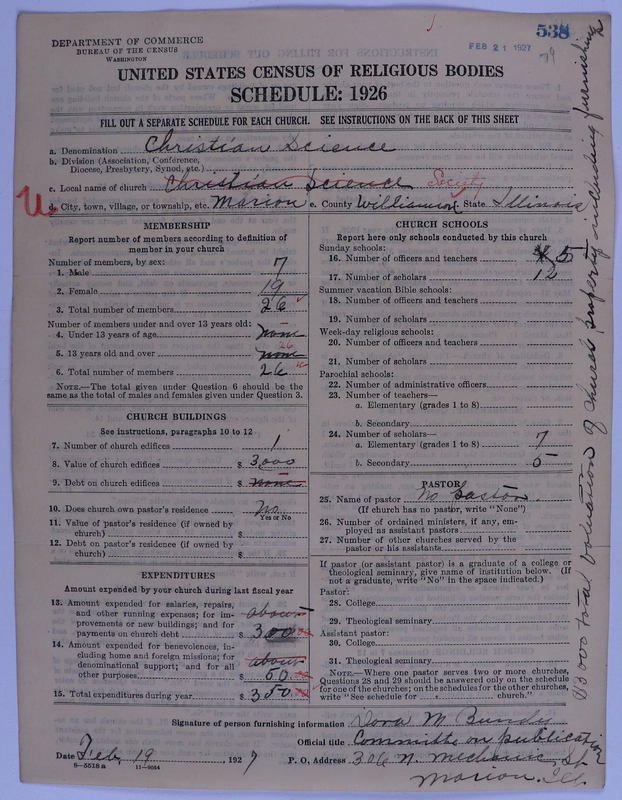 538
FEB 21 1927
79
DEPARTMENT OF COMMERCE
BUREAU OF THE CENSUS
WASHINGTON
UNITED STATES CENSUS OF RELIGIOUS BODIES
SCHEDULE: 1926
FILL OUT A SEPARATE SCHEDULE FOR EACH CHURCH. SEE INSTRUCTIONS ON THE BACK OF THIS SHEET
a. Denomination Christian Science
b. Division (Association, Conference, Diocese, Presbytery, Synod, etc.)
c. Local name of church Christian Science Society
d. City, town, village, or township, etc. Marion e. County Williamson State Illinois
MEMBERSHIP
Report number of members according to definition of member in your church
Number of members, by sex:
1. Male 7
2. Female 19
3. Total number of members 26
Number of members under and over 13 years old:
4. Under 13 years of age none
5. 13 years old and over none 26
6. Total number of members 26
NOTE.—The total given under Question 6 should be the same as the total of males and females given under Question 3.
CHURCH BUILDINGS
See instructions, paragraphs 10 to 12
7. Number of church edifices 1
8. Value of church edifices $ 3,000
9. Debt on church edifices $ none
10. Does church own pastor's residence No
Yes or No
11. Value of pastor's residence (if owned by church) $
12. Debt on pastor's residence (if owned by church) $
EXPENDITURES
Amount expended by your church during last fiscal year
13. Amount expended for salaries, repairs, and other running expenses; for improvements or new buildings; and for payments on church debt about $ 300
14. Amount expended for benevolences, including home and foreign missions; for denominational support; and for all other purposes about $ 50
15. Total expenditures during year $ 350
CHURCH SCHOOLS
Report here only schools conducted by this church
Sunday schools:
16. Number of officers and teachers 5
17. Number of scholars 12
Summer vacation Bible schools:
18. Number of officers and teachers
19. Number of scholars
Week-day religious schools:
20. Number of officers and teachers
21. Number of scholars
Parochial schools:
22. Number of administrative officers
23. Number of teachers—
a. Elementary (grades 1 to 8)
b. Secondary
24. Number of scholars—
a. Elementary (grades 1 to 8) 7
b. Secondary 5
PASTOR
25. Name of pastor No Pastor.
(If church has no pastor, write "None")
26. Number of ordained ministers, if any, employed as assistant pastors
27. Number of other churches served by the pastor or his assistants
If pastor (or assistant pastor) is a graduate of a college or theological seminary, give name of institution below. (If not a graduate, write "No" in the space indicated.)
Pastor:
28. College
29. Theological seminary
Assistant pastor:
30. College
31. Theological seminary
NOTE.—Where one pastor serves two or more churches, Questions 28 and 29 should be answered only on the schedule for one of the churches; on the schedules for the other churches, write "See schedule for church."
$3000 total valuation of church property including furnishing
Signature of person furnishing information Dora M. Bundy
Official title Committee on publication
Date Feb. 19 1927 P. O. Address 306 N. Mechanic St
8—5518a 11—9064
Marion. Ill.